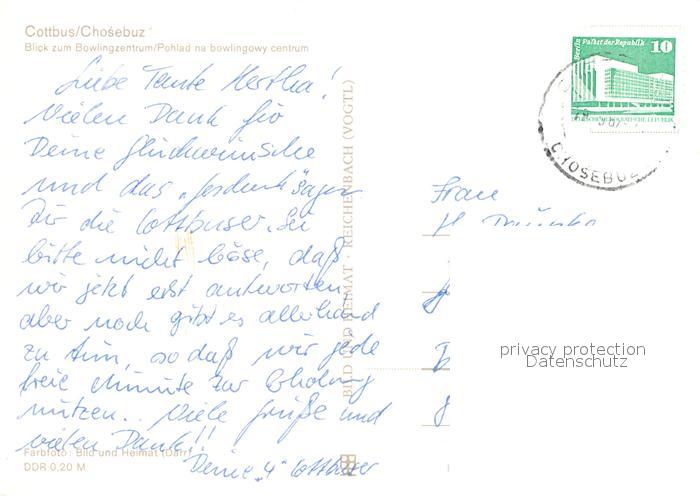 Cottbus/Chośebuz
Blick zum Bowlingzentrum/Pohlad na bowlingowy centrum
Liebe Tante Hertha!
Vielen Dank für
Deine Glückwünsche
und das „Geschenk" sagen
Dir die Cottbuser. Sei
bitte nicht böse, daß
wir jetzt erst antworten
aber noch gibt es allerhand
zu tun, so daß wir jede
freie Minute zur Erholung
nutzen.. Viele Grüße und
vielen Dank!!
Deine „4" Cottbuser
Farbfoto: Bild und Heimat (Darr)
DDR 0,20 M
BILD UND HEIMAT · REICHENBACH (VOGTL)
Berlin Palast der Republik 10
DEUTSCHE DEMOKRATISCHE REPUBLIK
CHOŚEBUZ
Frau
H.
privacy protection
Datenschutz